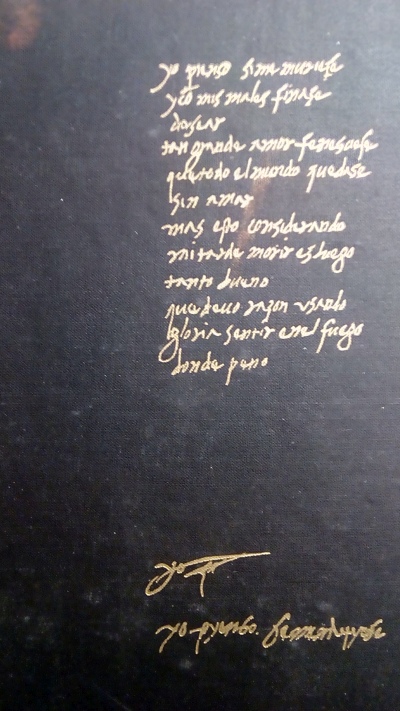 yo pienso si me muriese
y cō mis males finase
desear
tan grande amor fenesciese
que todo el mundo quedase
sin amar
mas esto considerando
mi tarde morir es luego
tanto bueno
que devo razon usando
gloria sentir en el fuego
donde peno
yo
yo pyenso